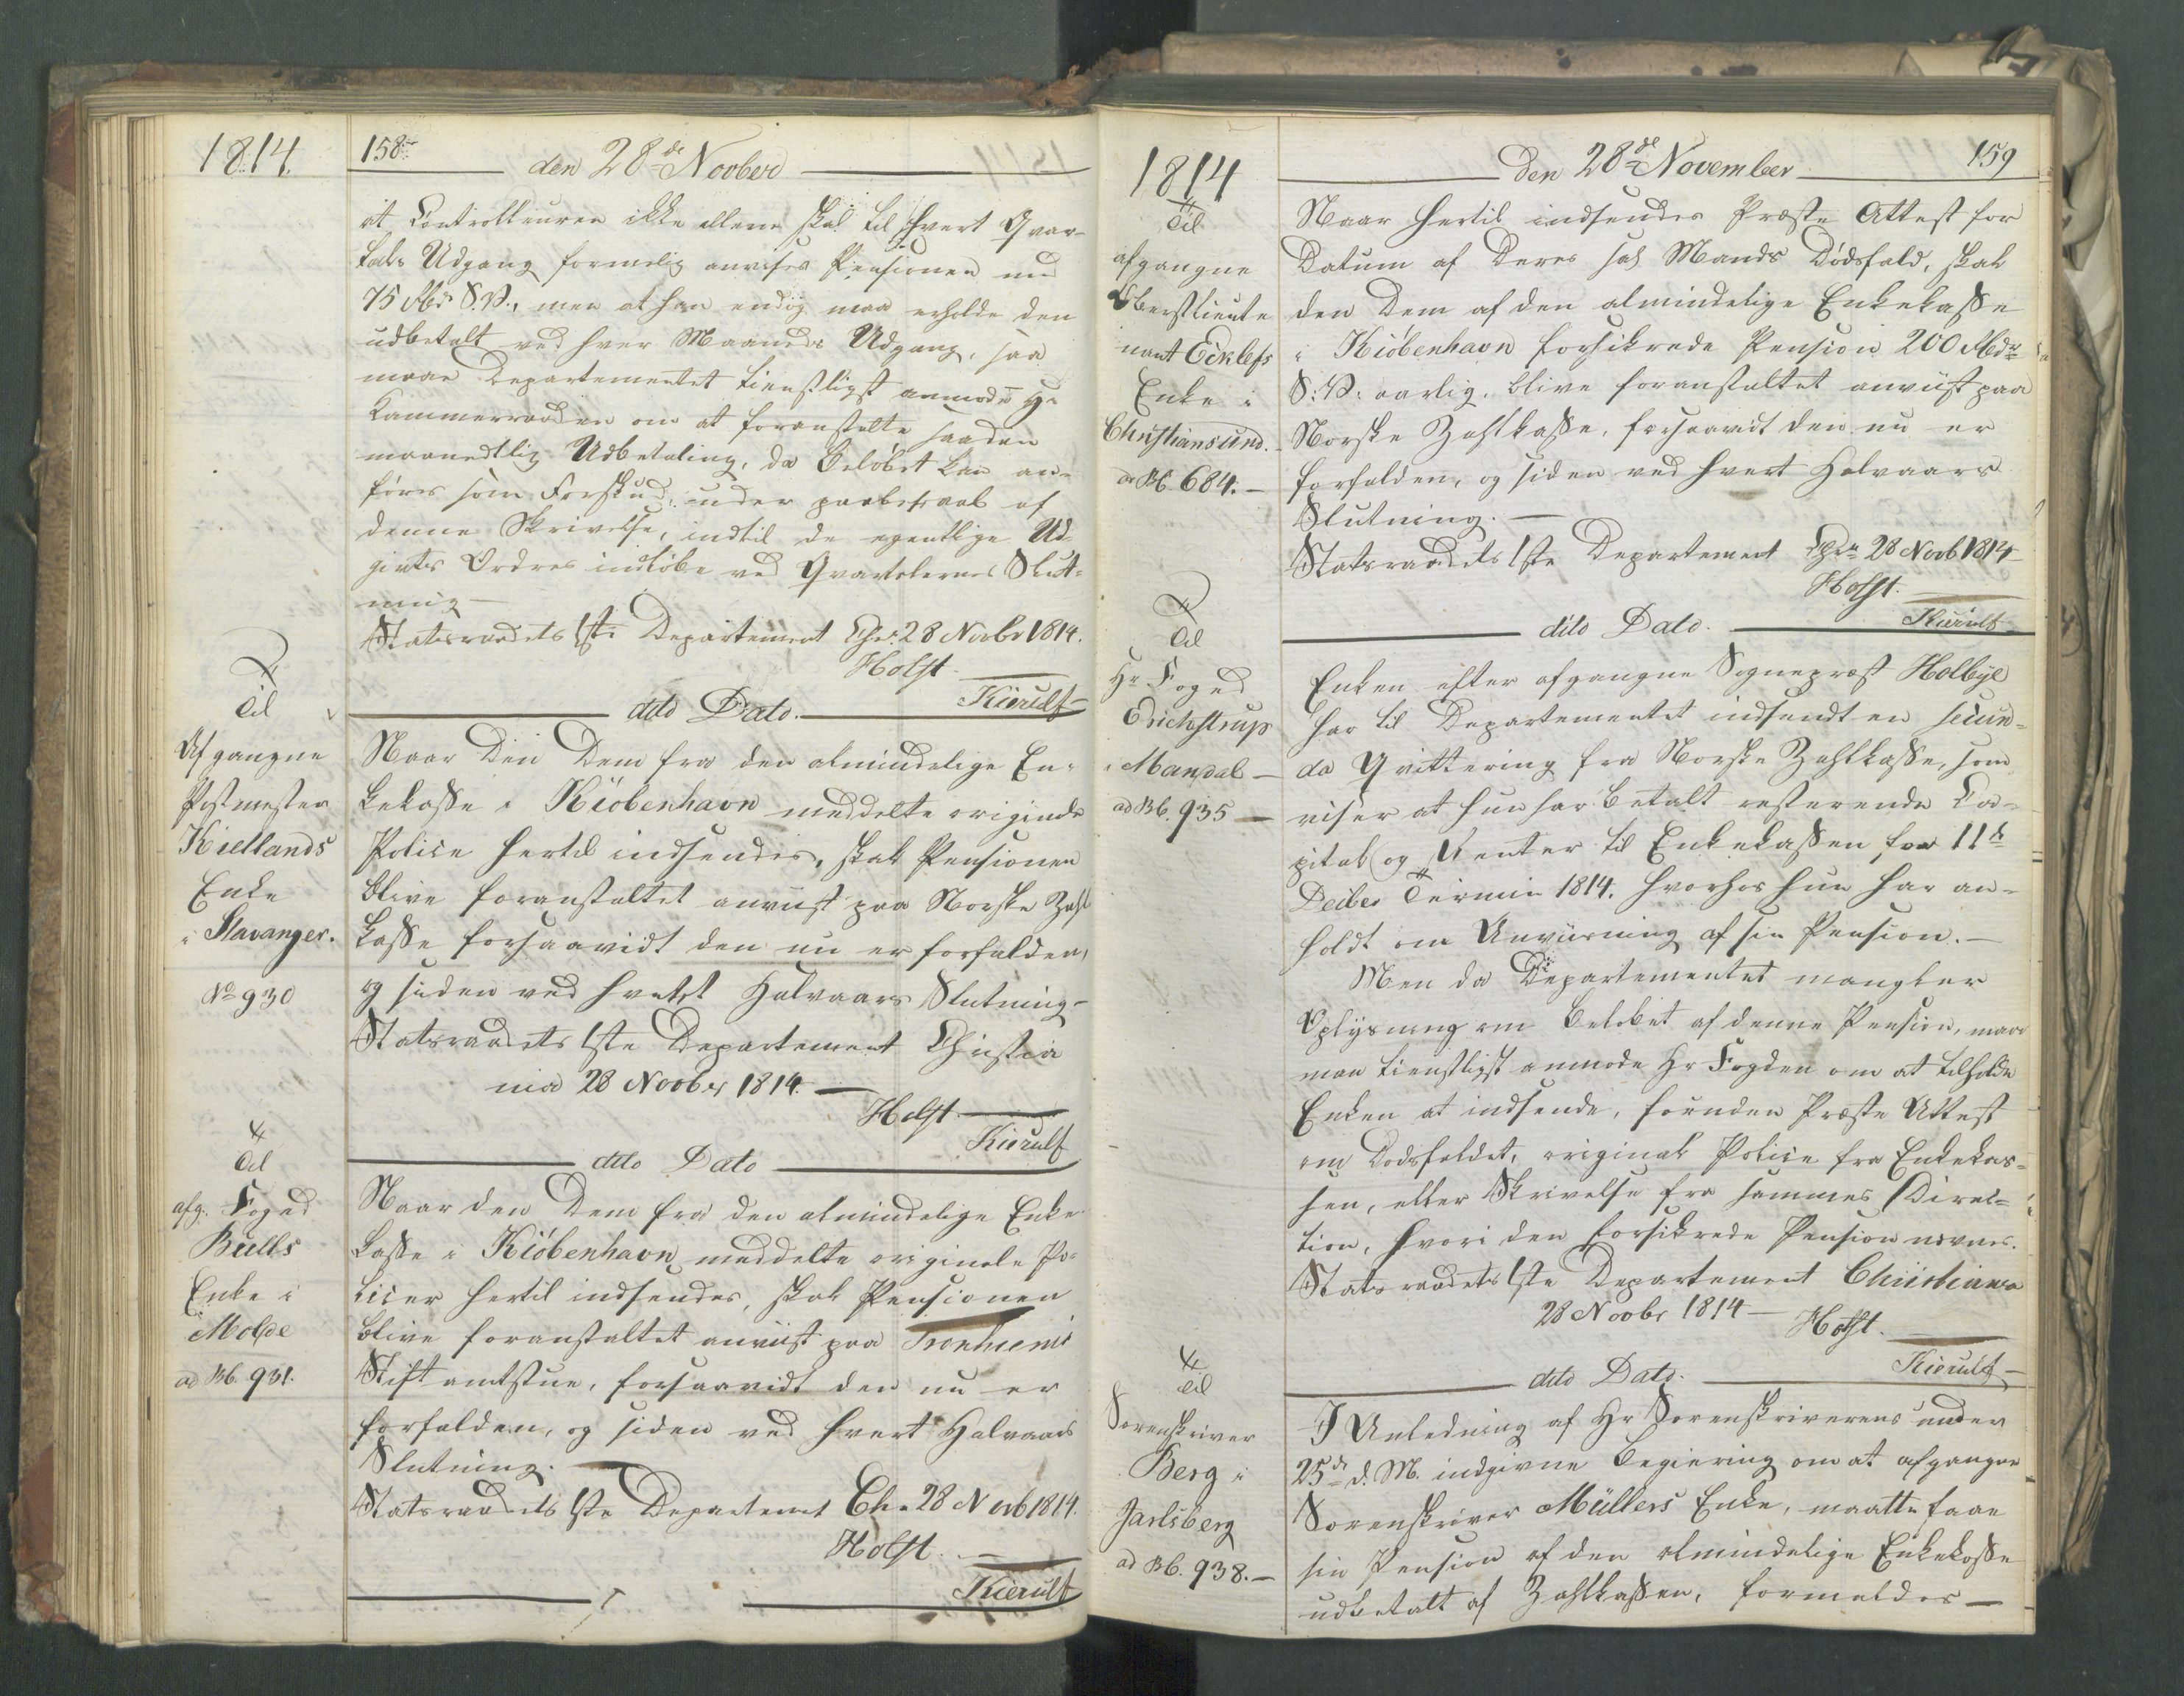 1814.
158
den 28de Novber
at Controlleuren ikke allene skal til hvert Qvar-
tals Udgang formelig anvises Pensionen med
75 Rbd S.V., men at han endog maa erholde den
udbetalt ved hver Maaneds Udgang, saa
maae Departementet tienstligst anmode Hr
Kammerraaden om at foranstalte saadan
maanedtlig Udbetaling, da Beløbet kan an-
føres som Forskud, under paaberaab af
denne Skrivelse, indtil de egentlige Ud-
givts Ordres indløbe ved Qvartalernes Slut-
ning
Statsraadets 1ste Departement Chra 28 Novbr 1814.
Holst
Kierulf
Til
Afgangne
Postmester
Kiellands
Enke
i Stavanger.
No 930
dito Dato.
Naar Den Dem fra den almindelige En-
kekasse i Kiöbenhavn meddelte originale
Police hertil indsendes, skal Pensionen
blive foranstaltet anviist paa Norske Zahl
kasse forsaavidt den nu er forfalden,
og siden ved hvert Halvaars Slutning-
Statsraadets 1ste Departement Christia
nia 28 Novber 1814.
Holst
Kierulf
Til
afg. Foged
Bulls
Enke i
Molde
ad No. 931.
dito Dato
Naar den Dem fra den almindelige Enke
kasse i Kiöbenhavn meddelte originale Po-
licer hertil indsendes, skal Pensionen
blive foranstaltet anviist paa Tronhiems
Stiftamtstue, forsaavidt den nu er
forfalden, og siden ved hvert Halvaars
Slutning.
Statsraadets 1ste Departement Chra 28 Novb 1814.
Holst
Kierulf
1814
den 28de November
159
Til
afgangne
Oberstlieute
nant Ecklefs
Enke i
Christiansund.
ad No. 684.
Naar hertil indsendes Præste Attest for
Datum af Deres sal Mands Dødsfald, skal
den Dem af den almindelige Enkekasse
i Kiöbenhavn forsikrede Pension 200 Rbdr
S: V: aarlig, blive foranstaltet anviist paa
Norske Zahlkasse, forsaavidt den nu er
forfalden, og siden ved hvert Halvaars
Slutning.
Statsraadets 1ste Departement Chra 28 Novb 1814
Holst.
Kierulf
Til
Hr Foged
Erichstrup
i Mandal
ad No. 935
dito Dato.
Enken efter afgangne Sognepræst Holbye
har til Departementet indsendt en secun-
da Qvittering fra Norske Zahlkasse, som
viser at hun har betalt resterende Ca-
pital og Renter til Enkekassen for 11te
Decber Termin 1814. hvorhos hun har an-
holdt om Anviisning af sin Pension.
Men da Departementet mangler
Oplysning om Beløbet af denne Pension, maae
man tienstligst anmode Hr Fogden om at tilholde
Enken at indsende, foruden Præste Attest
om Dødsfaldet, original Police fra Enkekas-
sen, eller Skrivelse fra sammes Direc-
tion, hvori den forsikrede Pension nævnes.
Statsraadets 1ste Departement Christiania
28 Novbr 1814
Holst.
Kierulf
Til
Sorenskriver
Berg i
Jarlsberg
ad No. 938.
dito Dato.
I Anledning af Hr Sorenskriverens under
25de d. M. indgivne Begiering om at afgangne
Sorenskriver Müllers Enke, maatte faae
sin Pension af den almindelige Enkekasse
udbetalt af Zahlkassen, formeldes